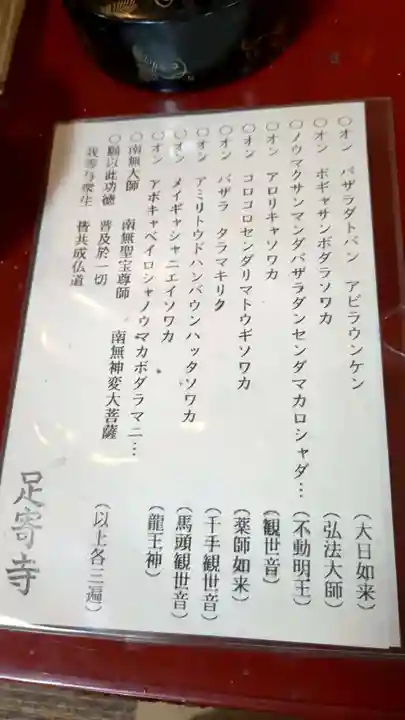 〇オン　バザラダトバン　アビラウンケン　（大日如来）
〇オン　ボギャサンボダラソワカ　（弘法大師）
〇ノウマクサンマンダバザラダンセンダマカロシャダ…　（不動明王）
〇オン　アロリキャソワカ　（観世音）
〇オン　コロコロセンダリマトウギソワカ　（薬師如来）
〇オン　バザラ　タラマキリク　（千手観世音）
〇オン　アミリトウドハンバウンハッタソワカ　（馬頭観世音）
〇オン　メイギャシャニエイソワカ　（龍王神）
〇オン　アボキャベイロシャノウマカボダラマニ…
〇南無大師　南無聖宝尊師　南無神変大菩薩
〇願以此功徳　普及於一切
我等与衆生　皆共成仏道　（以上各三遍）
足寄寺